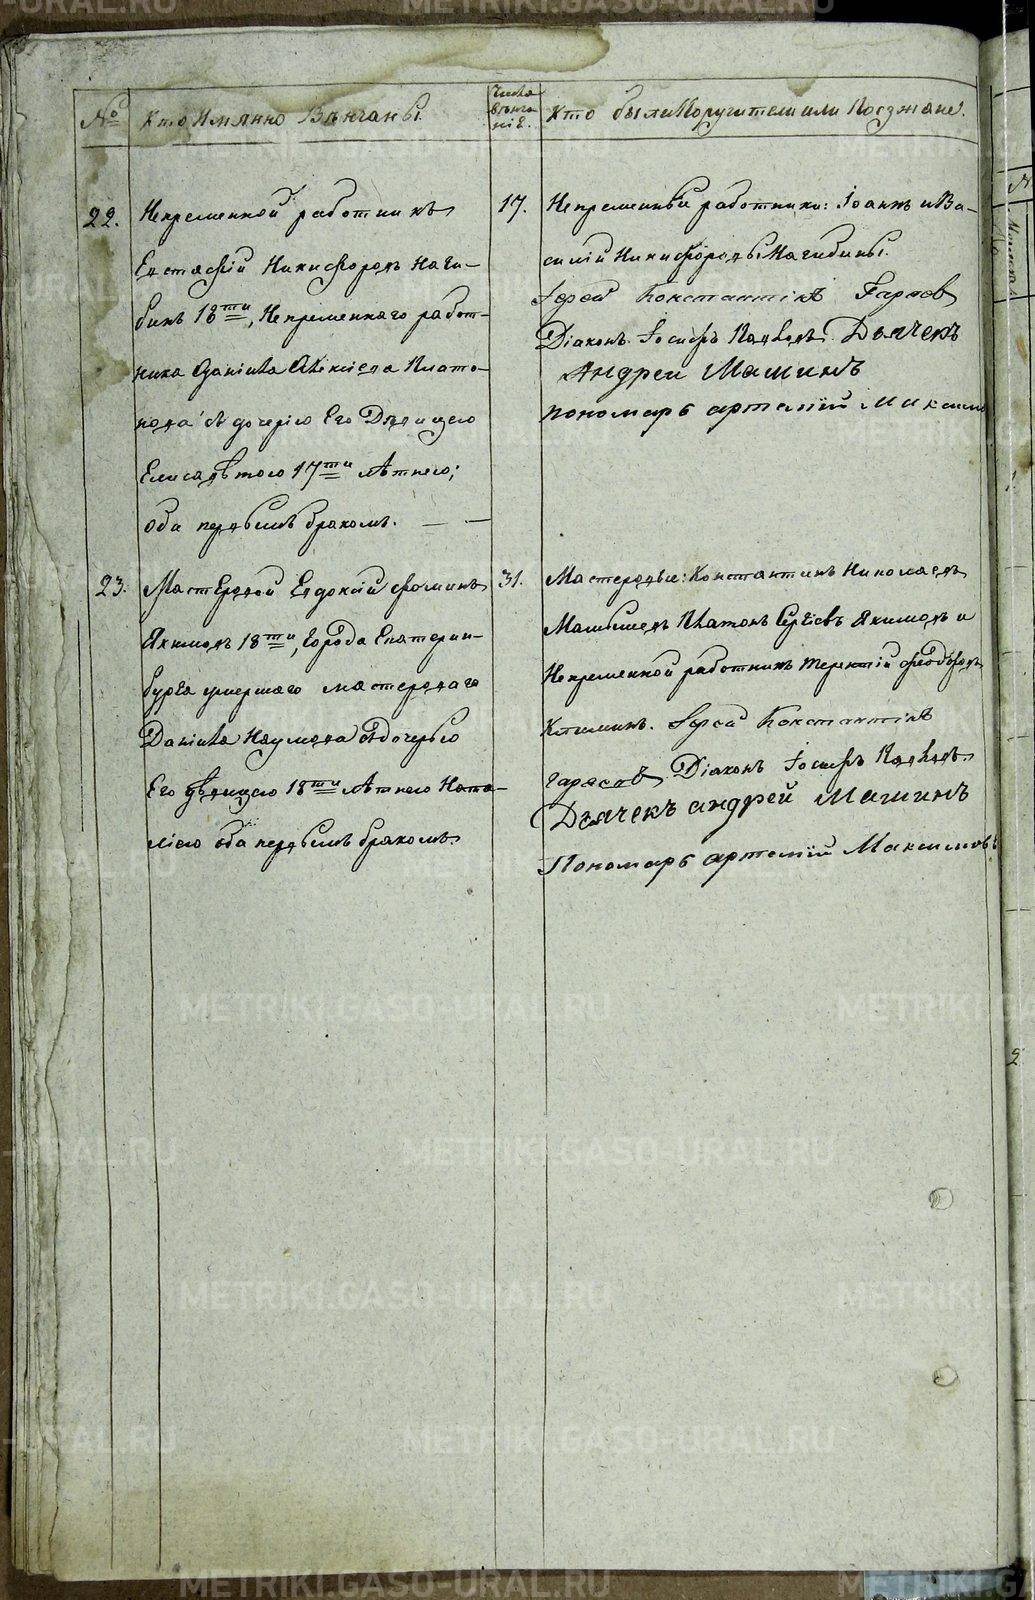 №
Кто Имянно Вѣнчаны.
Числа
Вѣнча
нiЕ.
Кто были Поручители или Поезжане.
22.
Непременной работникъ
Евстафiй Никифоровъ Наги-
бинъ 18ти, Непременнаго работ-
ника Данiила Алексiева Плато-
нова съ дочерiю Его Дѣвицею
Елисаветою 17ти лѣтнею;
оба первымъ бракомъ.
17.
Непременныи работники: Iоаннъ и Ва-
силiй Никифоровы Нагибины.
Iерей Константiнъ
Дiаконъ Iосифъ Дьячекъ
Андреи Машинъ
пономарь артемiй Максимо
23.
Мастеровой Евдокiй Фоминъ
Якимовъ 18ти, города Екатерин-
бурга умершаго мастероваго
Данiила Наумова съ дочерью
Его дѣвицею 18ти лѣтнею Ната-
лiею оба первымъ бракомъ.
31.
Мастеровые: Константинъ Николаевъ
Малышевъ Платонъ Сергѣевъ Якимовъ и
Непременной работникъ терентiй феодоровъ
Климинъ. Iерей Константiнъ
Дiаконъ Iосифъ
Дьячекъ андрей Машинъ
Пономарь артемiй Максимовъ
METRIKI.GASO-URAL.RU